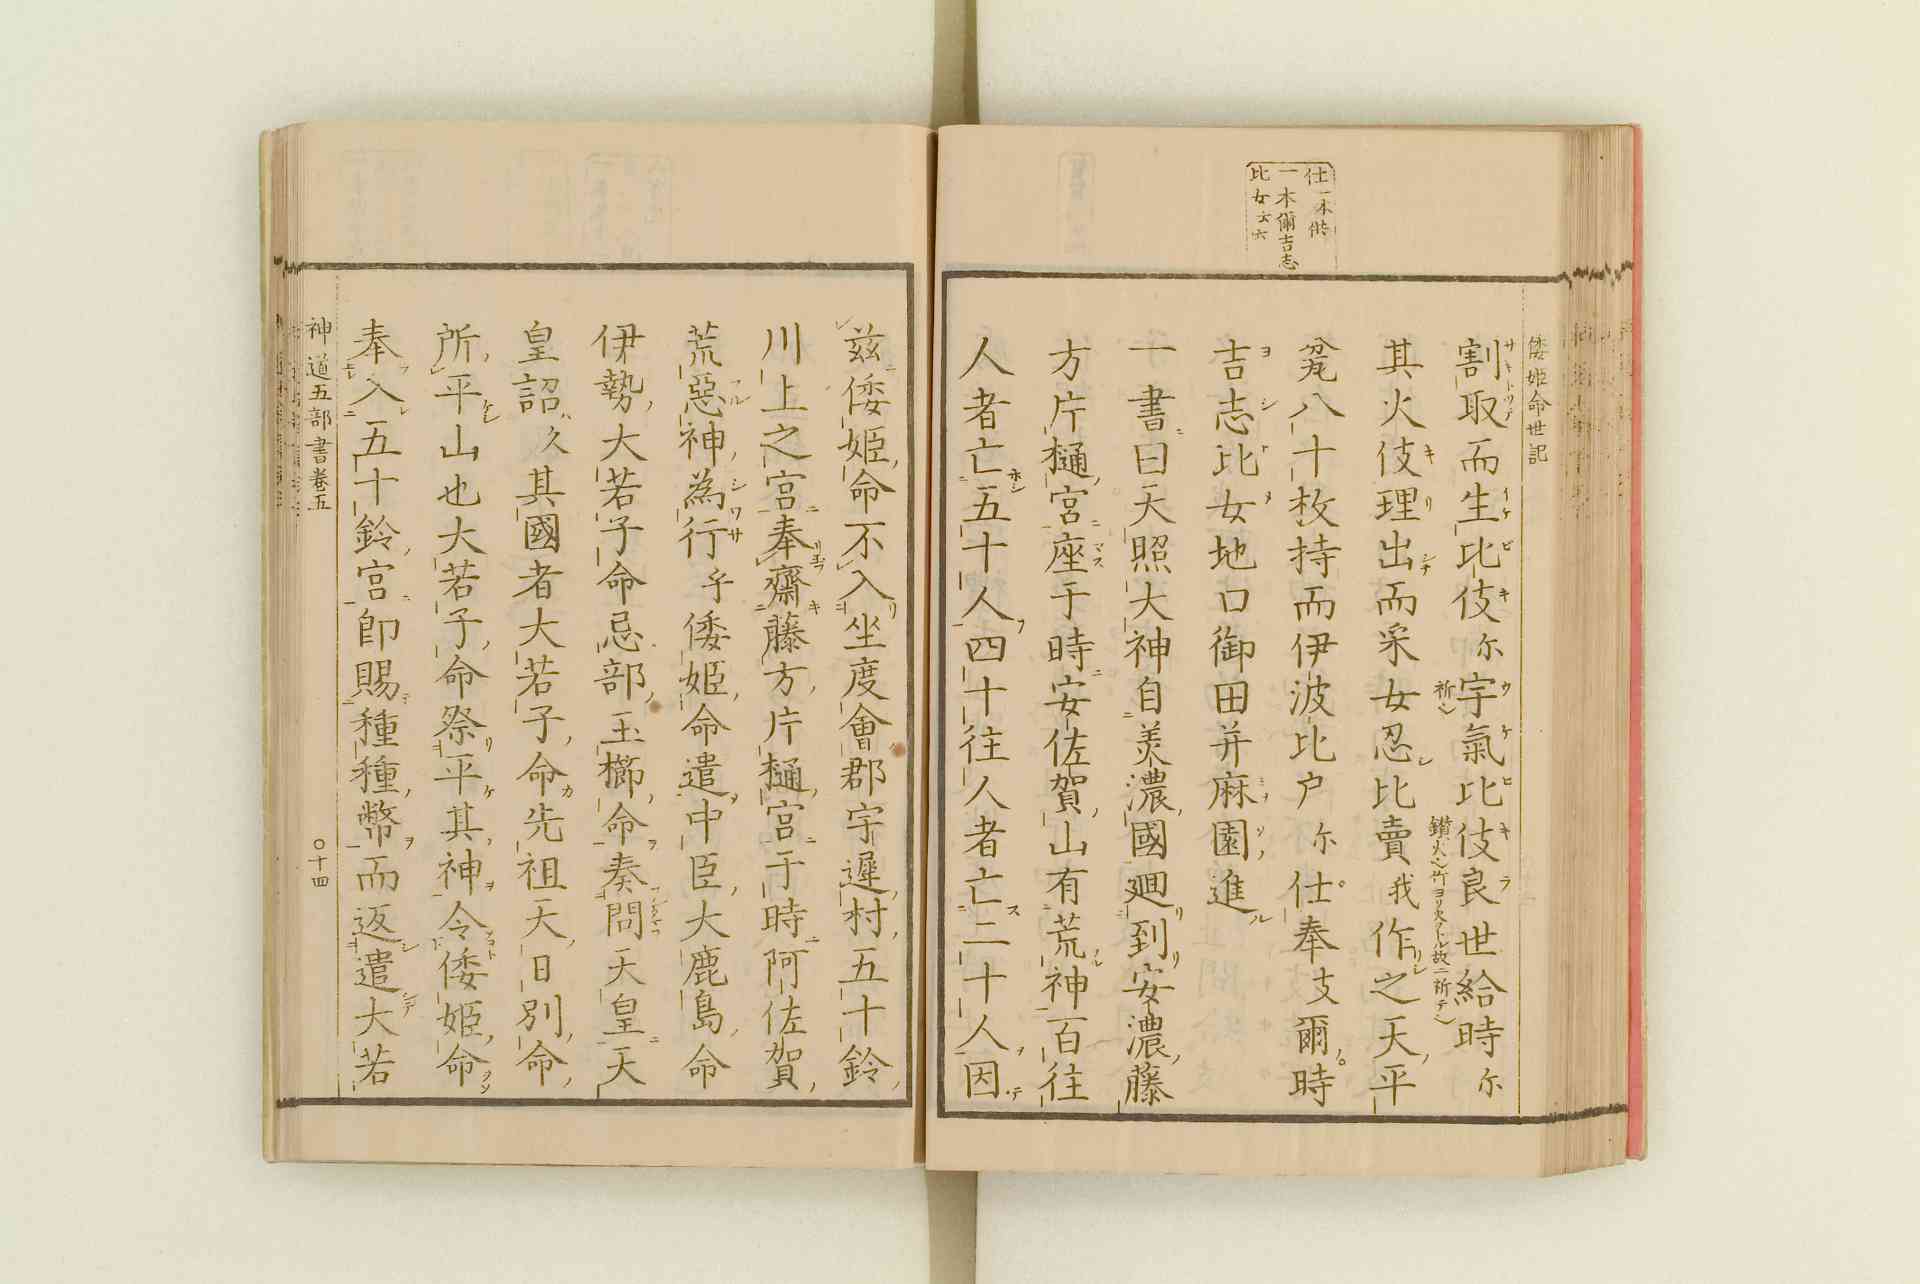 仕一本供
一本儞吉志
比女云云
倭姫命世記
割取而生比伎尓宇氣比伎良世給時尓
其火伎理出而采女忍比賣我作之天平
瓮八十枚持而伊波比戸尓仕奉支爾時
吉志比女地口御田并麻園進
一書曰天照大神自美濃國廻到安濃藤
方片樋宮座于時安佐賀山有荒神百往
人者亡五十人四十往人者亡二十人因
茲倭姫命不入坐度會郡宇遲村五十鈴
川上之宮奉齋藤方片樋宮于時阿佐賀
荒惡神為行乎倭姫命遣中臣大鹿島命
伊勢大若子命忌部玉櫛命奏問天皇天
皇詔久其國者大若子命先祖天日別命
所平山也大若子命祭平其神令倭姫命
奉入五十鈴宮即賜種種幣而返遣大若
神道五部書卷五
〇十四